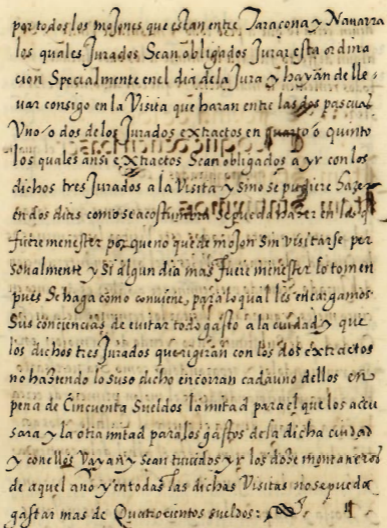 por todos los mojones que estan entre Taracona y Navarra
los quales Jurados Sean obligados Jurar esta ordina
cion Specialmente en el dia de la Jura y hayan de lle-
var consigo en la Visita que haran entre las dos pascuas
Uno o dos de los Jurados extractos en quarto o quinto
los quales ansi extractos Sean obligados a yr con los
dichos tres Jurados a la Visita y Sino se pudiere hazer
en dos dias como se acostumbra Se pueda hazer en los q
fuere menester porque no quede mojon Sin visitarse per
sonalmente y Si algun dia mas fuere menester lo tomen
pues Se haga como conviene, para lo qual les encargamos
Sus conciencias de evitar todo gasto a la ciudad y que
los dichos tres Jurados que rigiran con los dos extractos
no haziendo lo suso dicho encorran cada uno dellos en
pena de Cincuenta Sueldos la mitad para el que los accu
sara y la otra mitad para los gastos de la dicha ciudad
y con ellos Vayan y sean tuvidos yr los doze montaneros
de aquel año y en todas las dichas Visitas no se pueda
gastar mas de Quatrocientos sueldos: